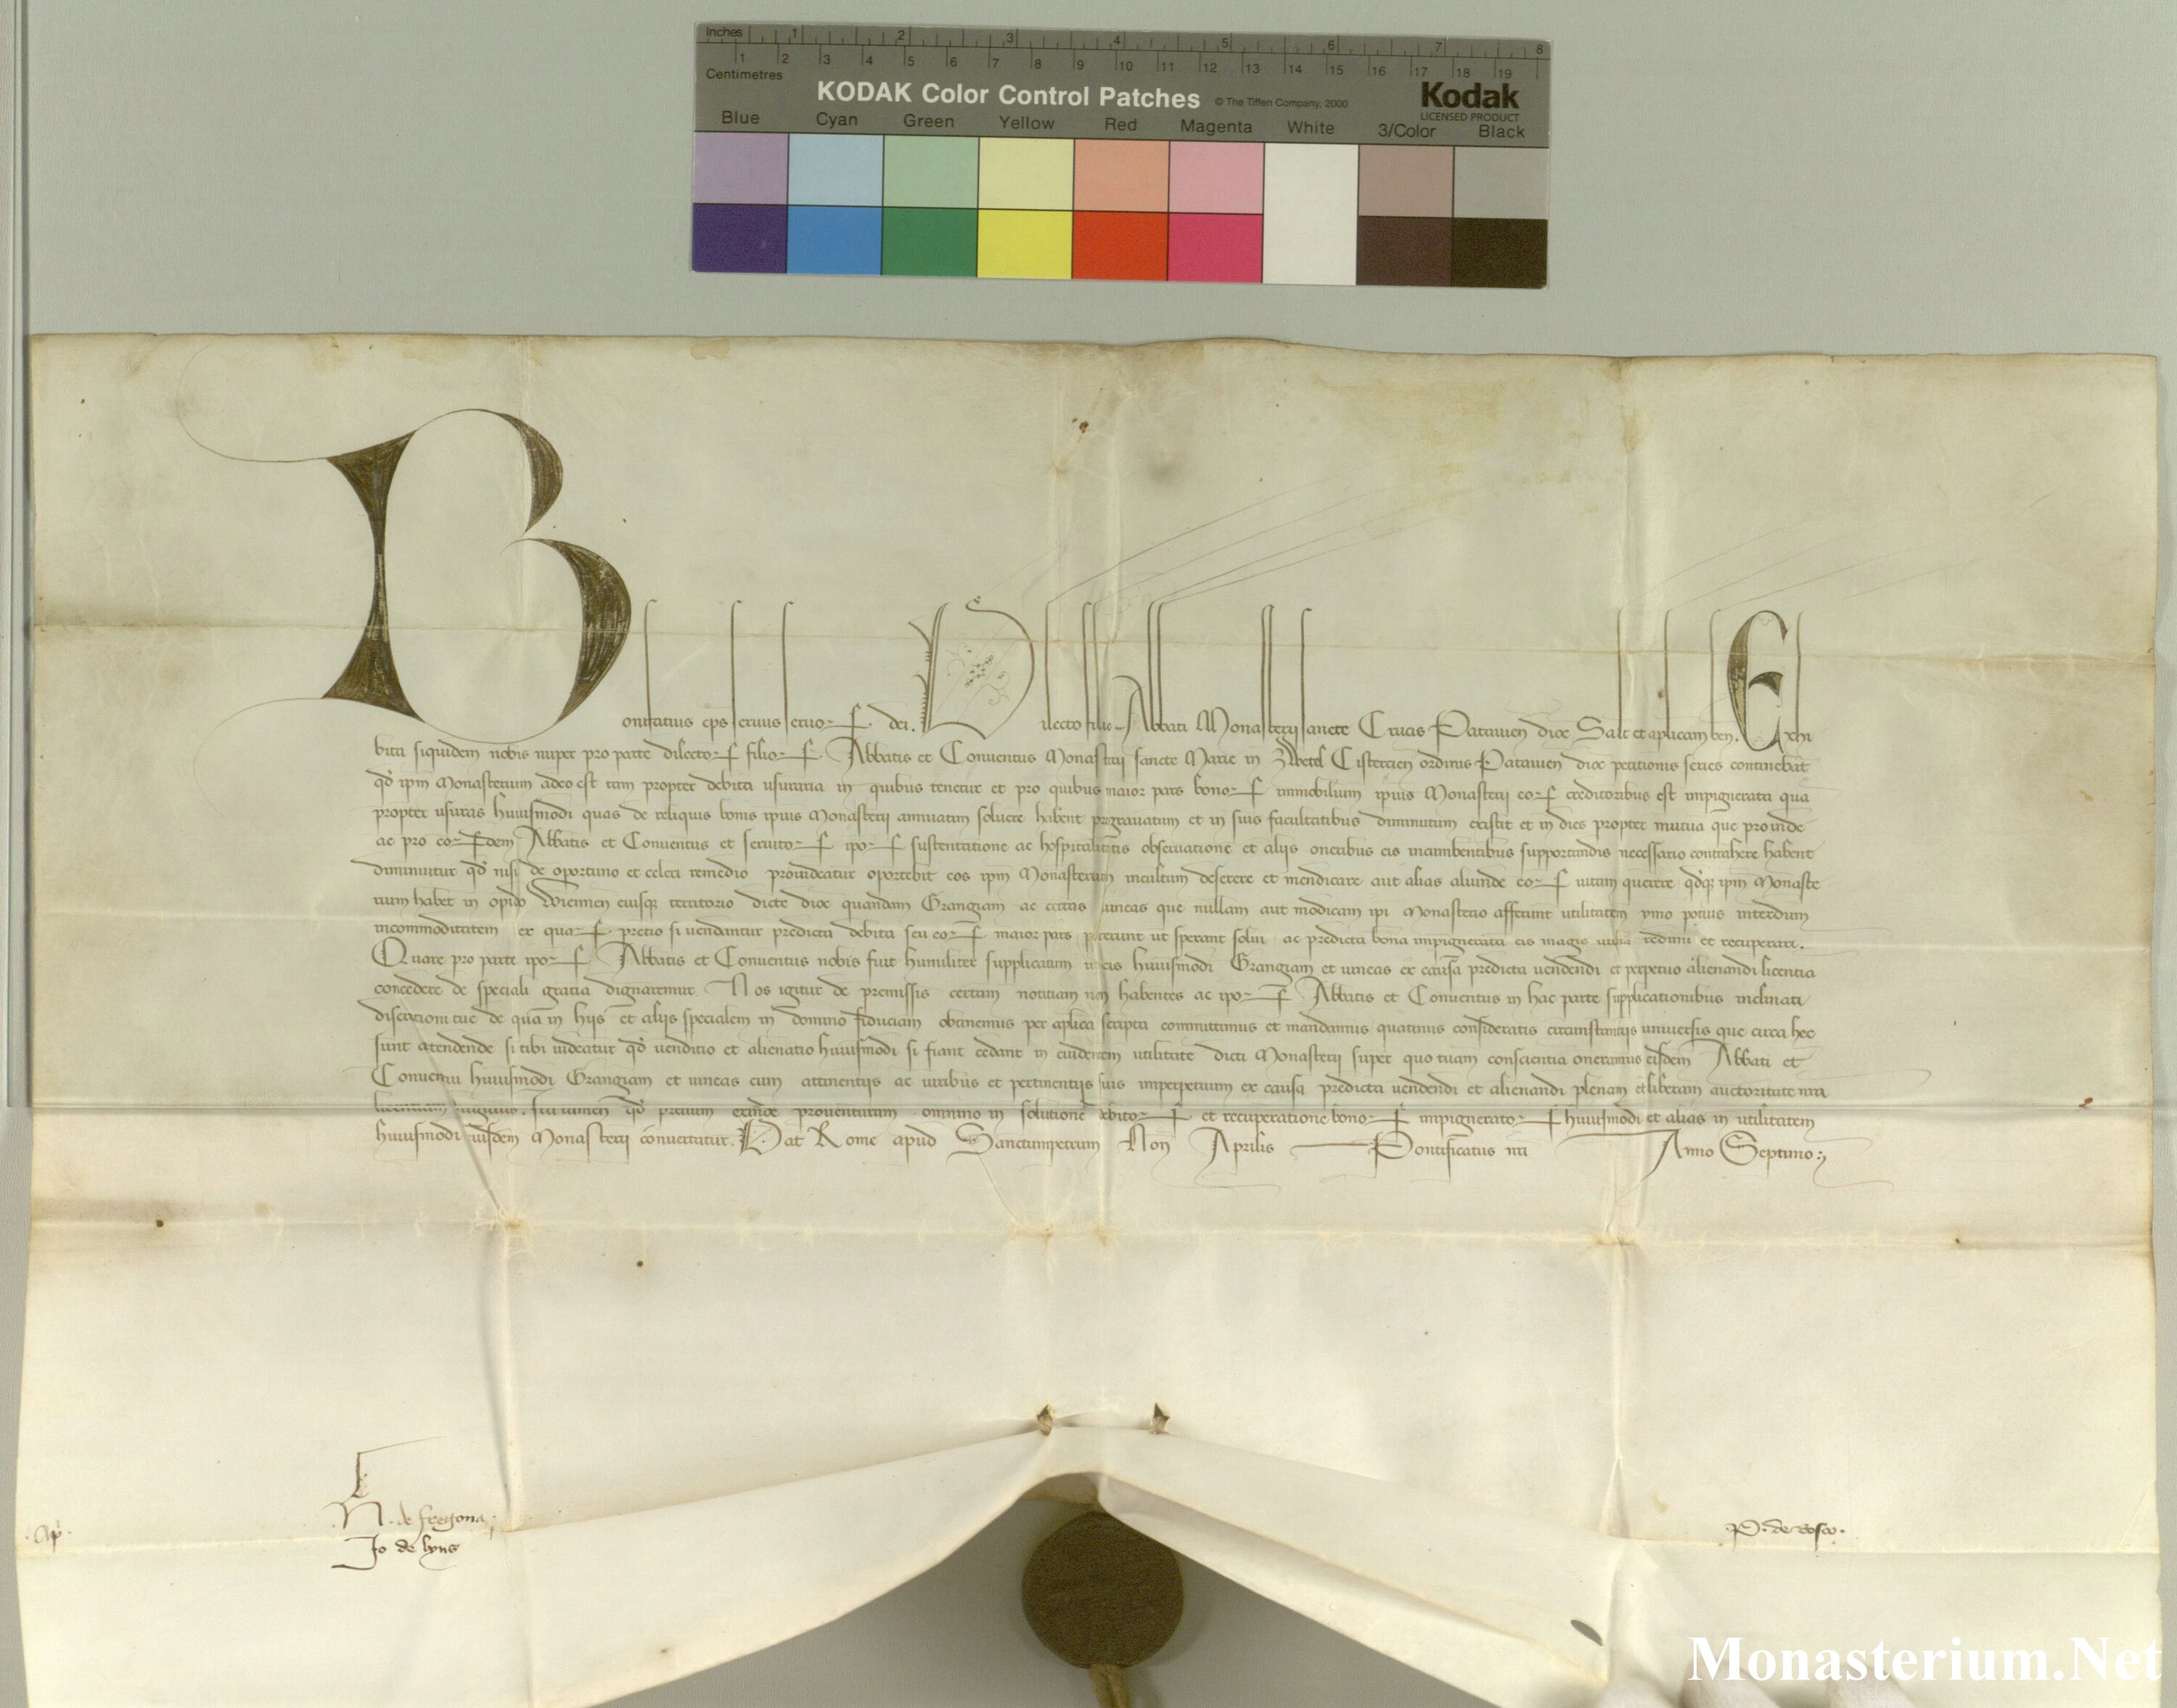 Inches 1 2 3 4 5 6 7 8
1 2 3 4 5 6 7 8 9 10 11 12 13 14 15 16 17 18 19
Centimetres
KODAK Color Control Patches © The Tiffen Company, 2000 Kodak
LICENSED PRODUCT
Blue Cyan Green Yellow Red Magenta White 3/Color Black
Bonifatius eps seruus seruoꝝ dei. Dilecto filio Abbati Monasterii sancte Crucis Patauien dioc Salt et aplicam ben. Exhi
bita siquidem nobis nuper pro parte dilectoꝝ filioꝝ Abbatis et Conuentus Monasterii sancte Marie in Zwetel Cistercien ordinis Patauien dioc petitionis series continebat
qd ipm Monasterium adeo est tam propter debita usuraria in quibus tenetur et pro quibus maior pars bonoꝝ immobilium ipius Monasterii eoꝝ creditoribus est impignerata qua
propter usuras huiusmodi quas de reliquis bonis ipius Monasterii annuatim soluere habent pregrauatum et in suis facultatibus diminutum existit et in dies propter mutua que proinde
ac pro eoꝝdem Abbatis et Conuentus et seruitoꝝ ipoꝝ sustentatione ac hospitalitatis obseruatione et aliis oneribus eis incumbentibus supportandis necessario contrahere habent
diminuitur qd nisi de oportuno et celeri remedio prouideatur oportebit eos ipm Monasterium incultum deserere et mendicare aut alias aliunde eoꝝ uitam querere qdqꝫ ipm Monaste
rium habet in opido Wiennen eiusqꝫ territorio dicte dioc quandam Grangiam ac certas uineas que nullam aut modicam ipi Monasterio afferunt utilitatem ymo potius interdum
incommoditatem ex quaꝝ pretio si uendantur predicta debita seu eoꝝ maior pars poterunt ut sperant solui ac predicta bona impignerata eis magis utilia redimi et recuperari.
Quare pro parte ipoꝝ Abbatis et Conuentus nobis fuit humiliter supplicatum ut eis huiusmodi Grangiam et uineas ex causa predicta uendendi et perpetuo alienandi licentia
concedere de speciali gratia dignaremur Nos igitur de premissis certam notitiam non habentes ac ipoꝝ Abbatis et Conuentus in hac parte supplicationibus inclinati
discretioni tue de qua in hiis et aliis specialem in domino fiduciam obtinemus per aplica scripta committimus et mandamus quatinus consideratis circunstantiis uniuersis que circa hec
sunt attendende si tibi uideatur qd uenditio et alienatio huiusmodi si fiant cedant in euidentem utilitate dicti Monasterii super quo tuam conscientia oneramus eisdem Abbati et
Conuentui huiusmodi Grangiam et uineas cum attinentiis ac iuribus et pertinentiis suis imperpetuum ex causa predicta uendendi et alienandi plenam et liberam auctoritate nra
licentiam largiaris. Ita tamen qd pretium exinde prouenturum omnino in solutione debitoꝝ et recuperatione bonoꝝ impigneratoꝝ huiusmodi et alias in utilitatem
huiusmodi eiusdem Monasterii conuertatur. Dat Rome apud Sanctumpetrum Non Aprilis Pontificatus nri Anno Septimo
N. de fregona
Jo de lyns
P. de bosco.
Monasterium.Net